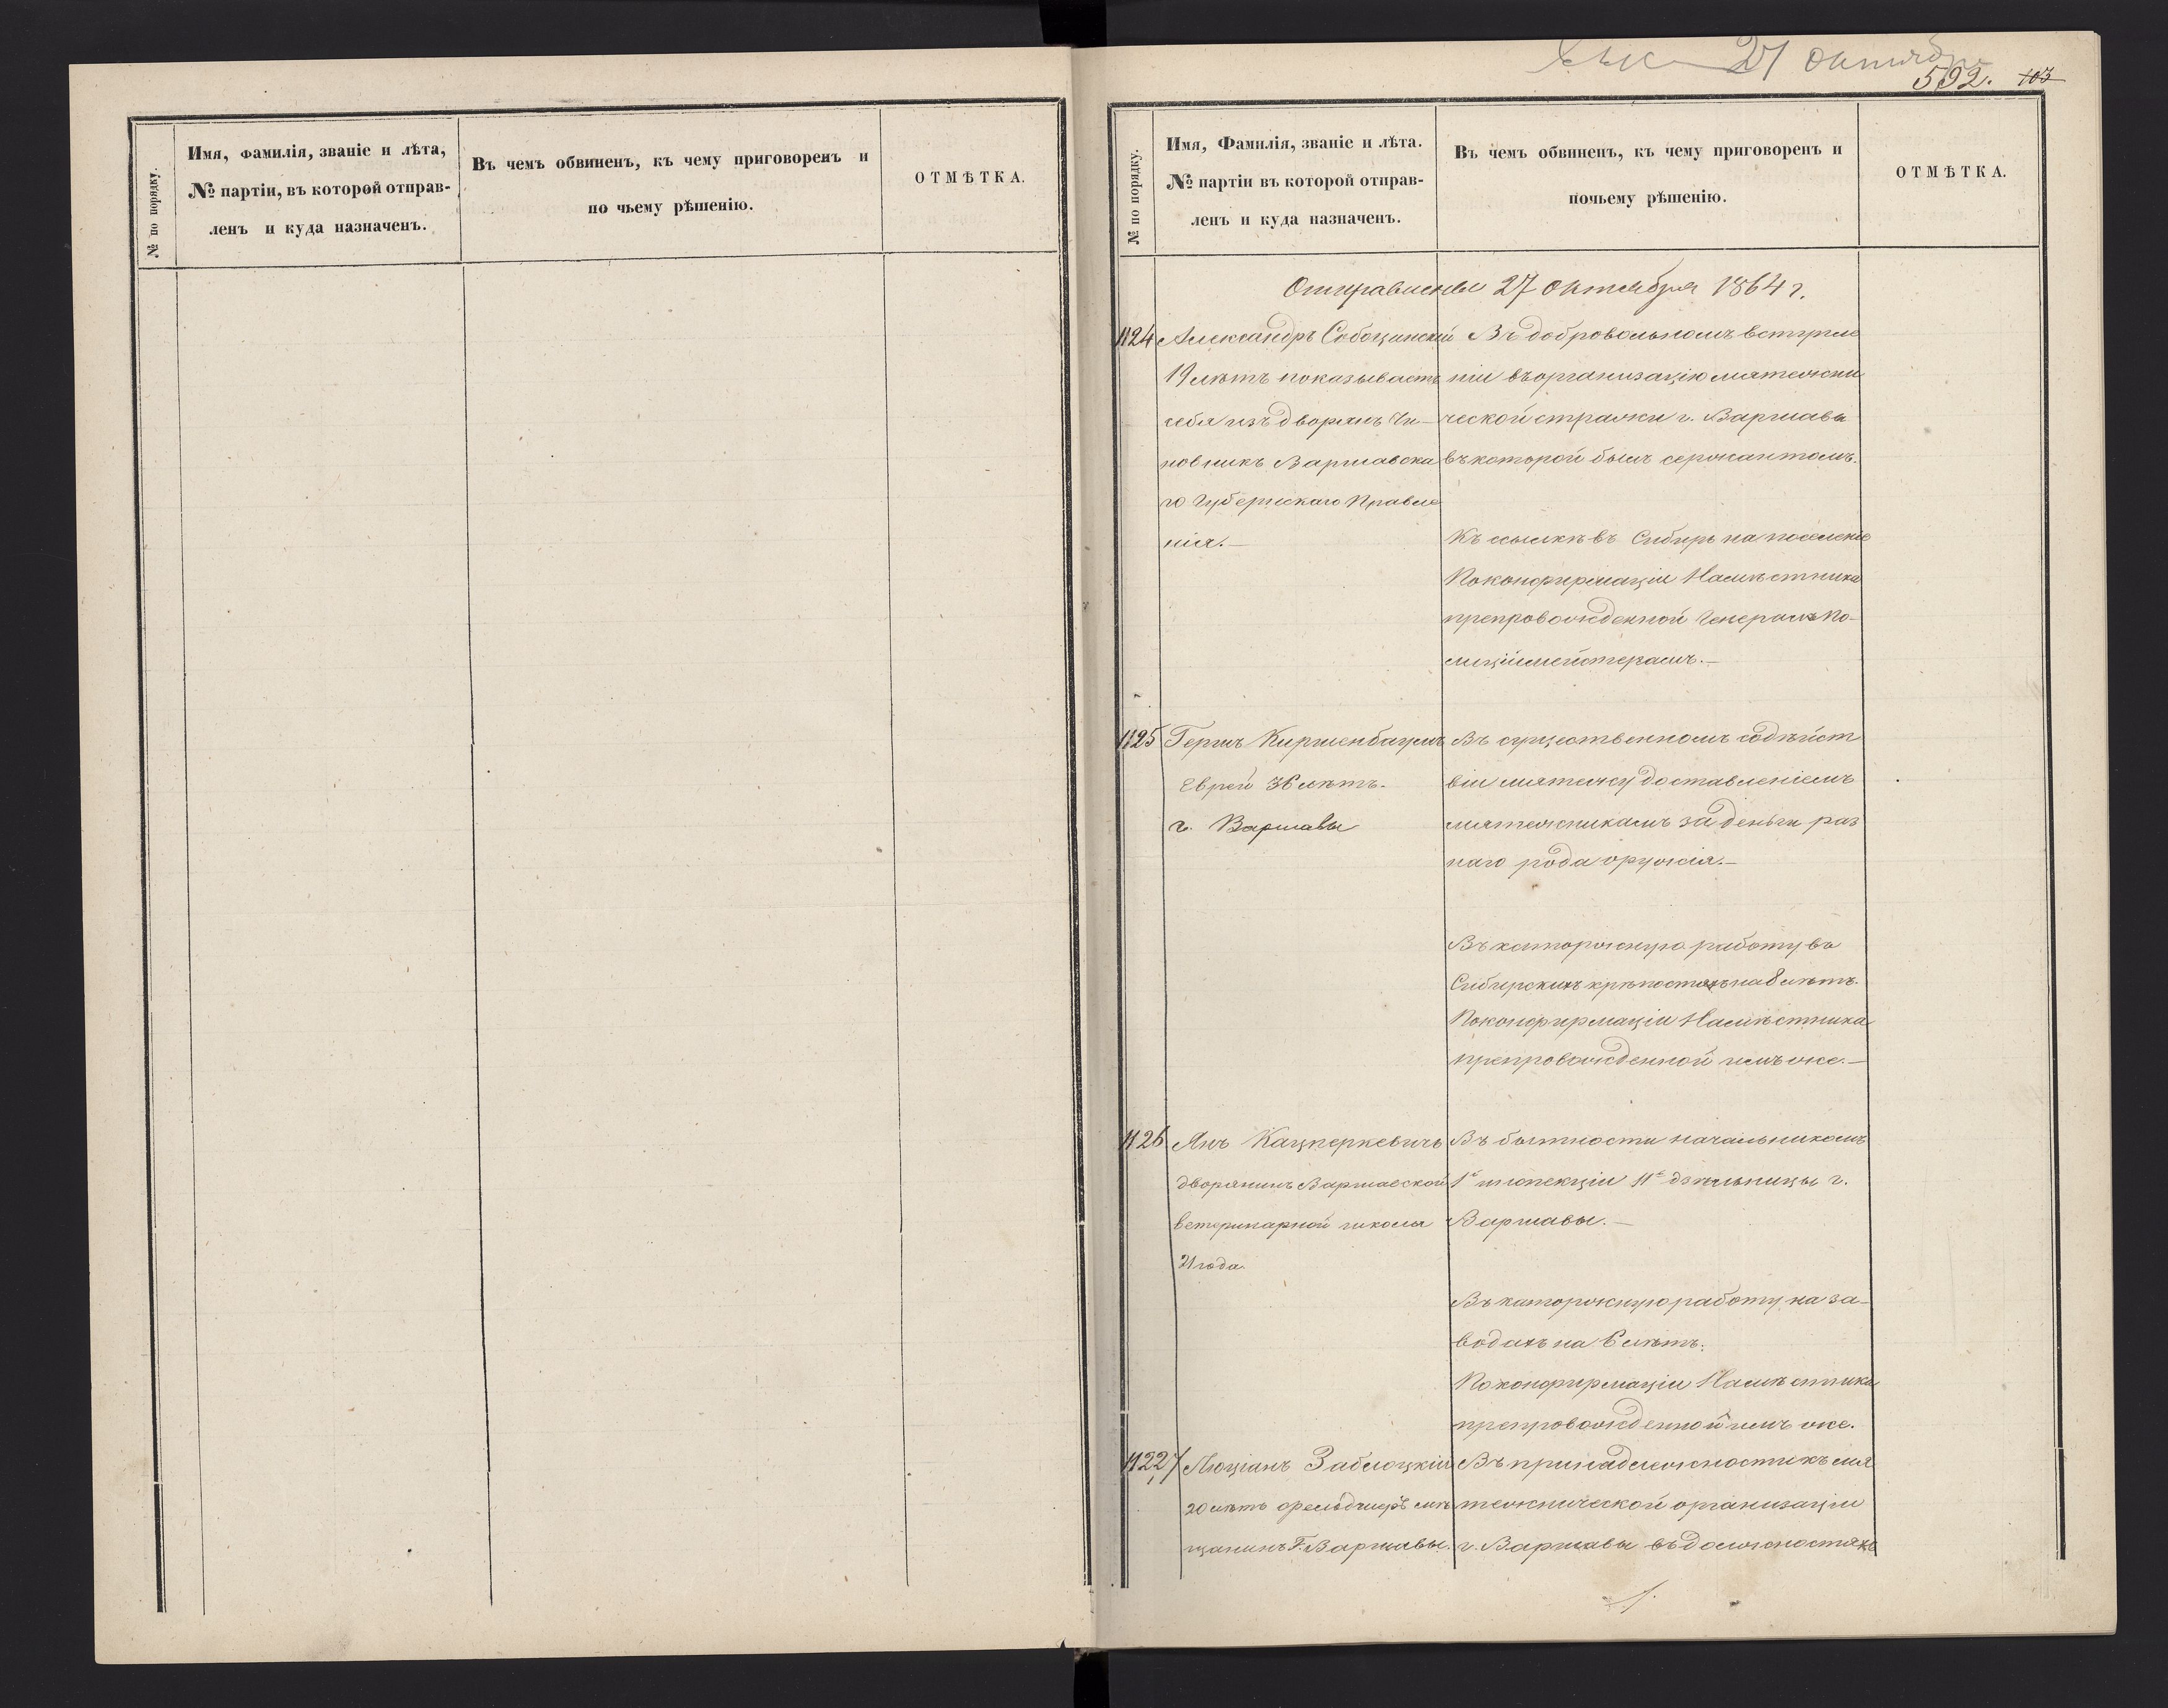 № по порядку.
Имя, Фамилія, званіе и лѣта,
№ партіи, въ которой отправ-
ленъ и куда назначенъ.
Въ чемъ обвиненъ, къ чему приговоренъ и
по чьему рѣшенію.
ОТМѢТКА.
27 октября
592. 103
№ по порядку.
Имя, Фамилія, званіе и лѣта.
№ партіи въ которой отправ-
ленъ и куда назначенъ.
Въ чемъ обвиненъ, къ чему приговоренъ и
почьему рѣшенію.
ОТМѢТКА.
Отправлены 27 октября 1864 г.
1124 Александръ Собоцинскій
19 лѣтъ показываетъ
себя изъ дворянъ Чи-
новникъ Варшавска
го Губернскаго Правле
нія.—
Въ добровольномъ вступле
ніи въ организацію мятежни
ческой стражи г. Варшавы
въ которой былъ сержантомъ.
Къ ссылкѣ въ Сибирь на поселеніе
По конфирмаціи Намѣстника
препровожденной Генералъ По-
лиціймейстерамъ.—
1125 Гершъ Киршенбаумъ
Еврей 36 лѣтъ.
г. Варшавы
Въ существенномъ содѣйст
віи мятежу доставленіемъ
мятежникамъ за деньги раз
наго рода оружія.—
Въ каторжную работу въ
Сибирскихъ крѣпостяхъ на 8 лѣтъ.
По конфирмаціи Намѣстника
препровожденной имъ же.—
1126 Янъ Кацперкевичъ
дворянинъ Варшавской
ветеринарной школы
21 года.
Въ бытности начальникомъ
1й инспекціи 11й дѣльницы г.
Варшавы.—
Въ каторжную работу на за-
водахъ на 6 лѣтъ.
По конфирмаціи Намѣстника
препровожденной имъ же.
11227 Люціанъ Заблоцкій
20 лѣтъ фельдшеръ мѣ
щанинъ Г. Варшавы.
Въ принадлежности къ мя
тежнической организаціи
г. Варшавы въ должностяхъ